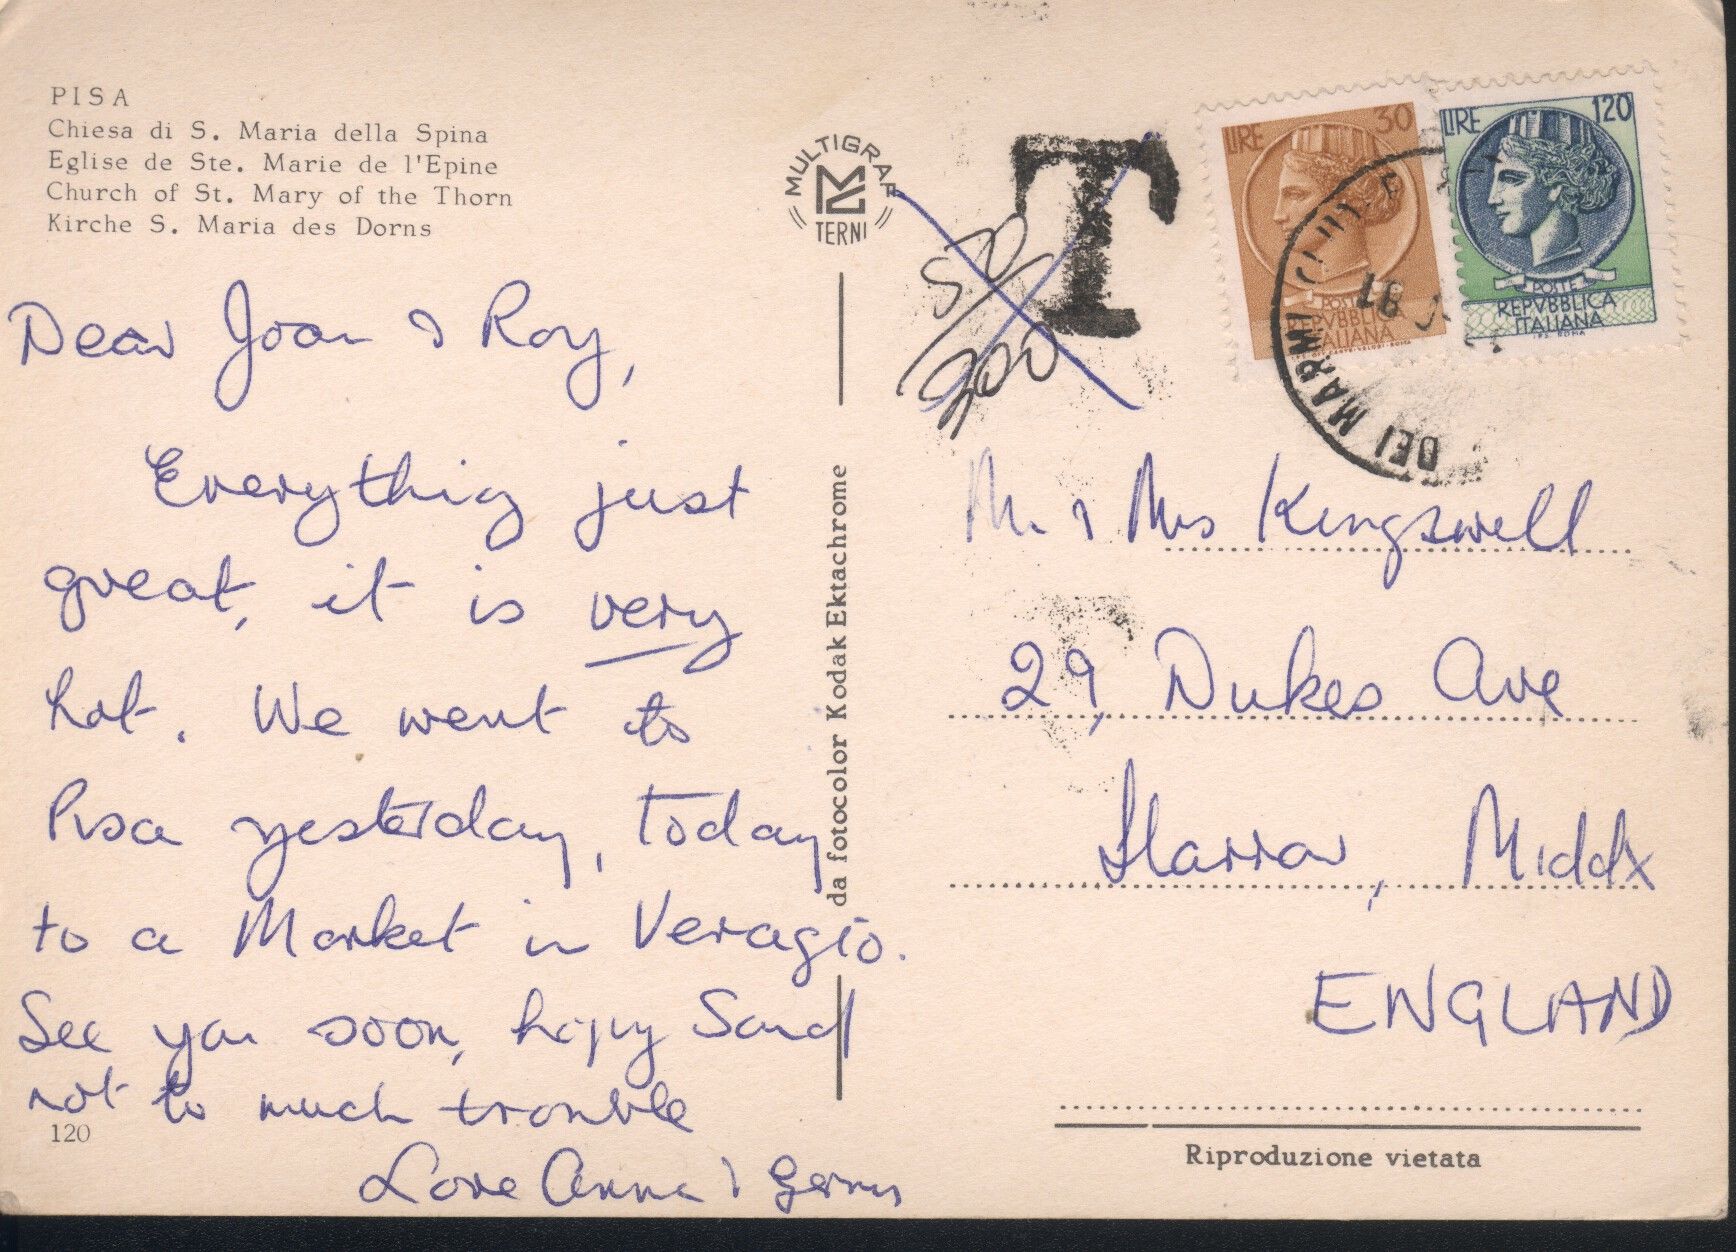 PISA
Chiesa di S. Maria della Spina
Eglise de Ste. Marie de l'Epine
Church of St. Mary of the Thorn
Kirche S. Maria des Dorns
Dear Joan & Roy,
Everything just
great, it is very
hot. We went to
Pisa yesterday, today
to a Market in Veragio.
See you soon, Sand
not to much trouble
Love Anna &
120
MULTIGRAF
TERNI
da fotocolor Kodak Ektachrome
T
50/200
LIRE 30
POSTE
REPVBBLICA
ITALIANA
LIRE 120
POSTE
REPVBBLICA
ITALIANA
DEI MARMI
18
Mr. & Mrs Kingswell
29, Dukes Ave
Harrow, Middx
ENGLAND
Riproduzione vietata